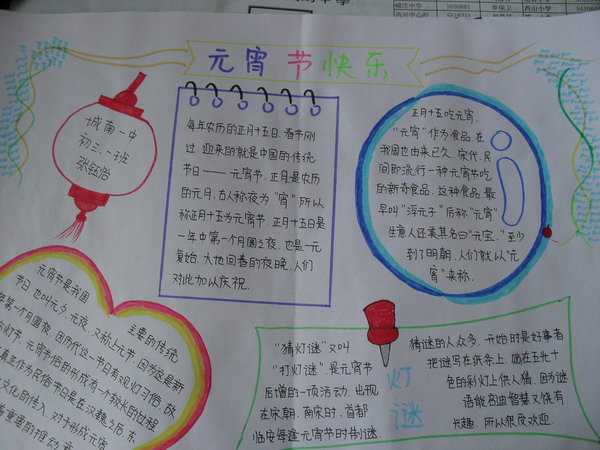 元宵节快乐
城南一中
初三、一班
每年农历的正月十五日,春节刚
过,迎来的就是中国的传统
节日——元宵节.正月是农历
的元月,古人称夜为"宵"所以
称正月十五为元宵节.正月十五日是
一年中第一个月圆之夜,也是一元
复始,大地回春的夜晚,人们
对此加以庆祝.
正月十五吃元宵.
"元宵"作为食品,在
我国也由来已久.宋代,民
间即流行一种元宵节吃
的新奇食品.这种食品,最
早叫"浮元子"后称"元宵"
生意人还美其名曰"元宝."至少
到了明朝,人们就以"元
宵"来称.
元宵节是我国
主要的传统
节日,也叫元夕、元夜,又称上元节,因为这是新
年第一个月圆夜.因历代这一节日有观灯习俗,故
灯节.元宵节俗的形成有一个较长的过程
真正作为民俗节日是在汉魏之后.东
文化的传入,对于形成元宵
重要的推动
"猜灯谜"又叫
"打灯谜".是元宵节
后增的一项活动,出现
在宋朝.南宋时,首都
临安每逢元宵节时制谜,
灯
谜
猜谜的人众多.开始时是好事者
把谜写在纸条上,贴在五光十
色的彩灯上供人猜.因为谜
语能启迪智慧又饶有
兴趣,所以很受欢迎.